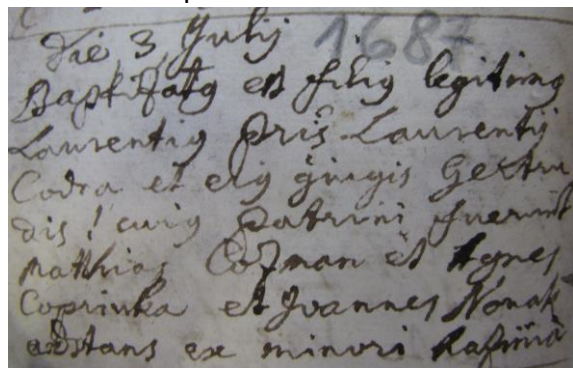 Die 3 Julij 1687
Baptizatg est filig legitimg
Laurentig Pris Laurentij
Codra et eig giugis Gertru
dis! cuig Patrini fuerunt
Matthias Cozman et Agnes
Coprivka et Joannes Novak
adstans ex minori